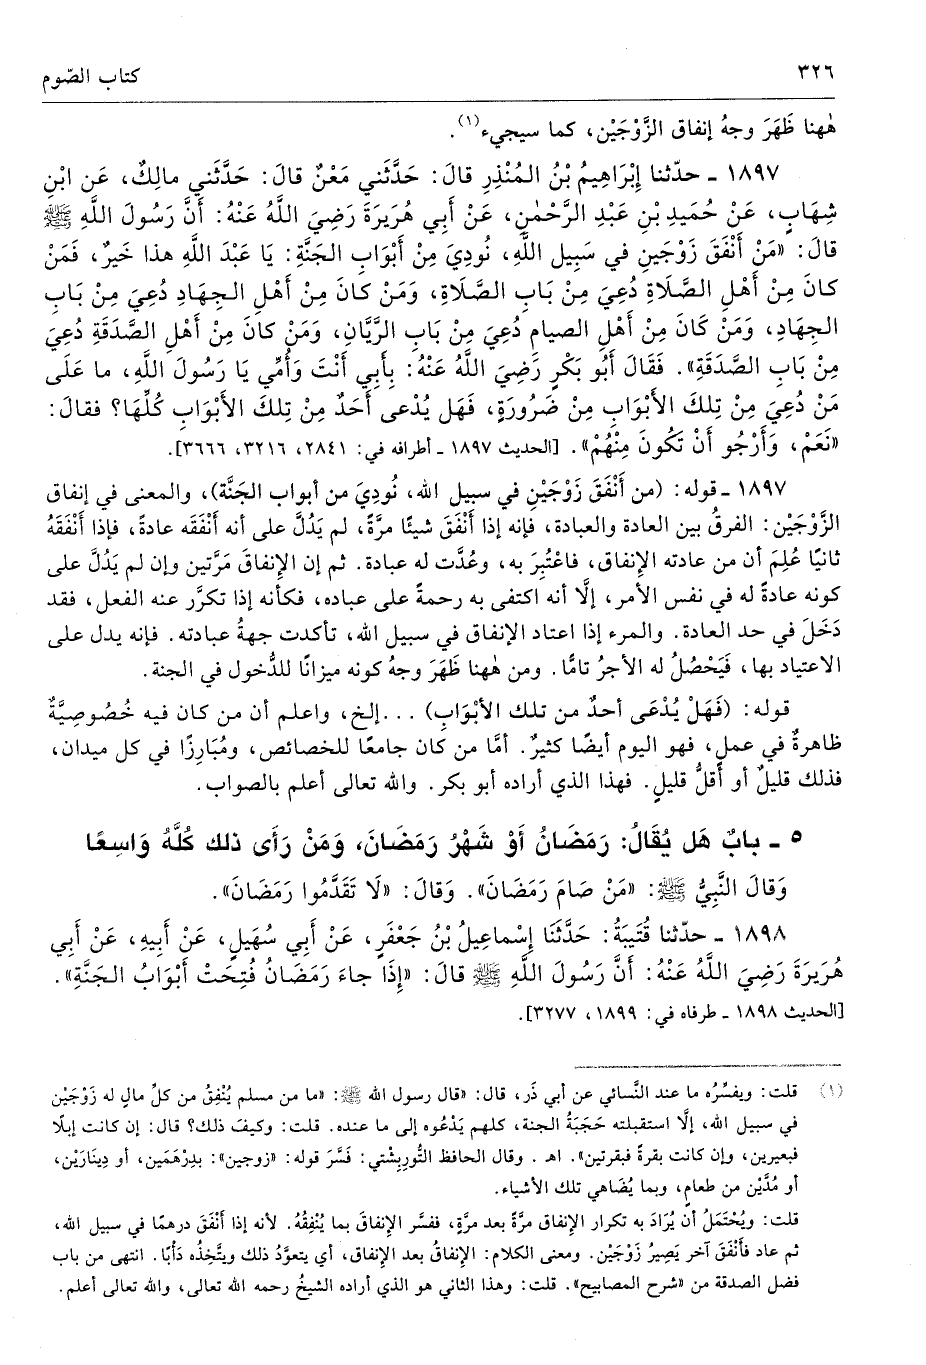 ٣٢٦
كتاب الصّوم
هٰهنا ظَهَرَ وجهُ إنفاق الزَّوْجَيْن، كما سيجيء(١).
١٨٩٧ ـ حدّثنا إِبْرَاهِيمُ بْنُ المُنْذِرِ قالَ: حَدَّثَنِي مَعْنٌ قالَ: حَدَّثَنِي مالِكٌ، عَنِ ابْنِ
شِهَابٍ، عَنْ حُمَيدِ بْنِ عَبْدِ الرَّحْمٰنِ، عَنْ أَبِي هُرَيرَةَ رَضِيَ اللَّهُ عَنْهُ: أَنَّ رَسُولَ اللَّهِ ﷺ
قالَ: «مَنْ أَنْفَقَ زَوْجَينِ في سَبِيلِ اللَّهِ، نُودِيَ مِنْ أَبْوَابِ الجَنَّةِ: يَا عَبْدَ اللَّهِ هذا خَيرٌ، فَمَنْ
كانَ مِنْ أَهْلِ الصَّلَاةِ دُعِيَ مِنْ بَابِ الصَّلَاةِ، وَمَنْ كانَ مِنْ أَهْلِ الجِهَادِ دُعِيَ مِنْ بَابِ
الجِهَادِ، وَمَنْ كَانَ مِنْ أَهْلِ الصيامِ دُعِيَ مِنْ بَابِ الرَّيَّانِ، وَمَنْ كانَ مِنْ أَهْلِ الصَّدَقَةِ دُعِيَ
مِنْ بَابِ الصَّدَقَةِ». فَقَالَ أَبُو بَكْرٍ رَضِيَ اللَّهُ عَنْهُ: بِأَبِي أَنْتَ وَأُمِّي يَا رَسُولَ اللَّهِ، ما عَلَى
مَنْ دُعِيَ مِنْ تِلكَ الأَبْوَابِ مِنْ ضَرُورَةٍ، فَهَل يُدْعى أَحَدٌ مِنْ تِلكَ الأَبْوَابِ كُلِّهَا؟ فقالَ:
«نَعَمْ، وَأَرْجُو أَنْ تَكُونَ مِنْهُمْ». [الحديث ١٨٩٧ ـ أطرافه في: ٢٨٤١، ٣٢١٦، ٣٦٦٦].
١٨٩٧ ـ قوله: (من أَنْفَقَ زَوْجَيْنِ في سبيل الله، نُودِيَ من أبواب الجَنَّة)، والمعنى في إنفاق
الزَّوْجَيْن: الفرقُ بين العادة والعبادة، فإنه إذا أَنْفَقَ شيئًا مرَّةً، لم يَدُلَّ على أنه أَنْفَقَه عادةً، فإذا أَنْفَقَهُ
ثانيًا عُلِمَ أن من عادته الإِنفاق، فاعْتُبِرَ به، وعُدَّت له عبادة. ثم إن الإِنفاقَ مَرَّتين وإن لم يَدُلَّ على
كونه عادةً له في نفس الأمر، إلَّا أنه اكتفى به رحمةً على عباده، فكأنه إذا تكرَّر عنه الفعل، فقد
دَخَلَ في حد العادة. والمرء إذا اعتاد الإنفاق في سبيل الله، تأكدت جهةُ عبادته. فإنه يدل على
الاعتياد بها، فَيَحْصُلُ له الأجرُ تامًّا. ومن هٰهنا ظَهَرَ وجهُ كونه ميزانًا للدُّخول في الجنة.
قوله: (فَهَلْ يُدْعَى أحدٌ من تلك الأَبْوَابِ) ...إلخ، واعلم أن من كان فيه خُصُوصِيَّةٌ
ظاهرةٌ في عملٍ، فهو اليوم أيضًا كثيرٌ. أمَّا من كان جامعًا للخصائص، ومُبَارِزًا في كل ميدان،
فذلك قليلٌ أو أقلُّ قليلٍ. فهذا الذي أراده أبو بكر. والله تعالى أعلم بالصواب.
٥ ـ بابٌ هَل يُقَالُ: رَمَضَانُ أَوْ شَهْرُ رَمَضَانَ، وَمَنْ رَأَى ذلك كُلَّهُ وَاسِعًا
وَقالَ النَّبِيُّ ﷺ: «مَنْ صَامَ رَمَضَانَ». وَقالَ: «لَا تَقَدَّمُوا رَمَضَانَ».
١٨٩٨ ـ حدّثنا قُتَيبَةُ: حَدَّثَنَا إِسْماعِيلُ بْنُ جَعْفَرٍ، عَنْ أَبِي سُهَيلٍ، عَنْ أَبِيهِ، عَنْ أَبِي
هُرَيرَةَ رَضِيَ اللَّهُ عَنْهُ: أَنَّ رَسُولَ اللَّهِ ﷺ قالَ: «إِذَا جاءَ رَمَضَانُ فُتِحَتْ أَبْوَابُ الجَنَّةِ».
[الحديث ١٨٩٨ ـ طرفاه في: ١٨٩٩، ٣٢٧٧].
(١) قلت: ويفسِّرُه ما عند النَّسائي عن أبي ذَر، قال: «قال رسول الله ﷺ: «ما من مسلم يُنْفِقُ من كلِّ مالٍ له زَوْجَيْن
في سبيل الله، إلَّا استقبلته حَجَبَةُ الجنة، كلهم يَدْعُوه إلى ما عنده. قلت: وكيفَ ذلك؟ قال: إن كانت إبلًا
فبعيرين، وإن كانت بقرةً فبقرتين». اهـ. وقال الحافظ التُّورِبِشْتي: فَسَّرَ قوله: «زوجين»: بدِرْهَمَين، أو دِينَارَيْن،
أو مُدَّيْن من طعامٍ، وبما يُضَاهي تلك الأشياء.
قلت: ويُحْتَمَلُ أن يُرَادَ به تكرار الإِنفاق مرَّةً بعد مرَّةٍ، ففسَّر الإنفاقَ بما يُنْفِقُهُ. لأنه إذا أَنْفَقَ درهمًا في سبيل الله،
ثم عاد فأَنْفَقَ آخر يَصِيرُ زَوْجَيْن. ومعنى الكلام: الإنفاقُ بعد الإنفاق، أي يتعوَّدُ ذلك ويتَّخِذُه دَأْبًا. انتهى من باب
فضل الصدقة من «شرح المصابيح». قلت: وهذا الثاني هو الذي أراده الشيخُ رحمه الله تعالى، والله تعالى أعلم.